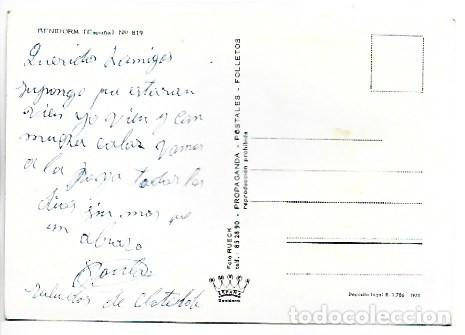 BENIDORM (España) Nº 819
Queridos Lamigos
supongo pu estaran
vien yo vien y con
mucha calor vamos
a la playa todos los
dias sin mas que
un abrazo
saludos de Clotilde
Foto RUECK - PROPAGANDA - POSTALES - FOLLETOS
telf. 85 28 90 reproducción prohibida
Benidorm
Depósito legal B. 1.786
todocoleccion